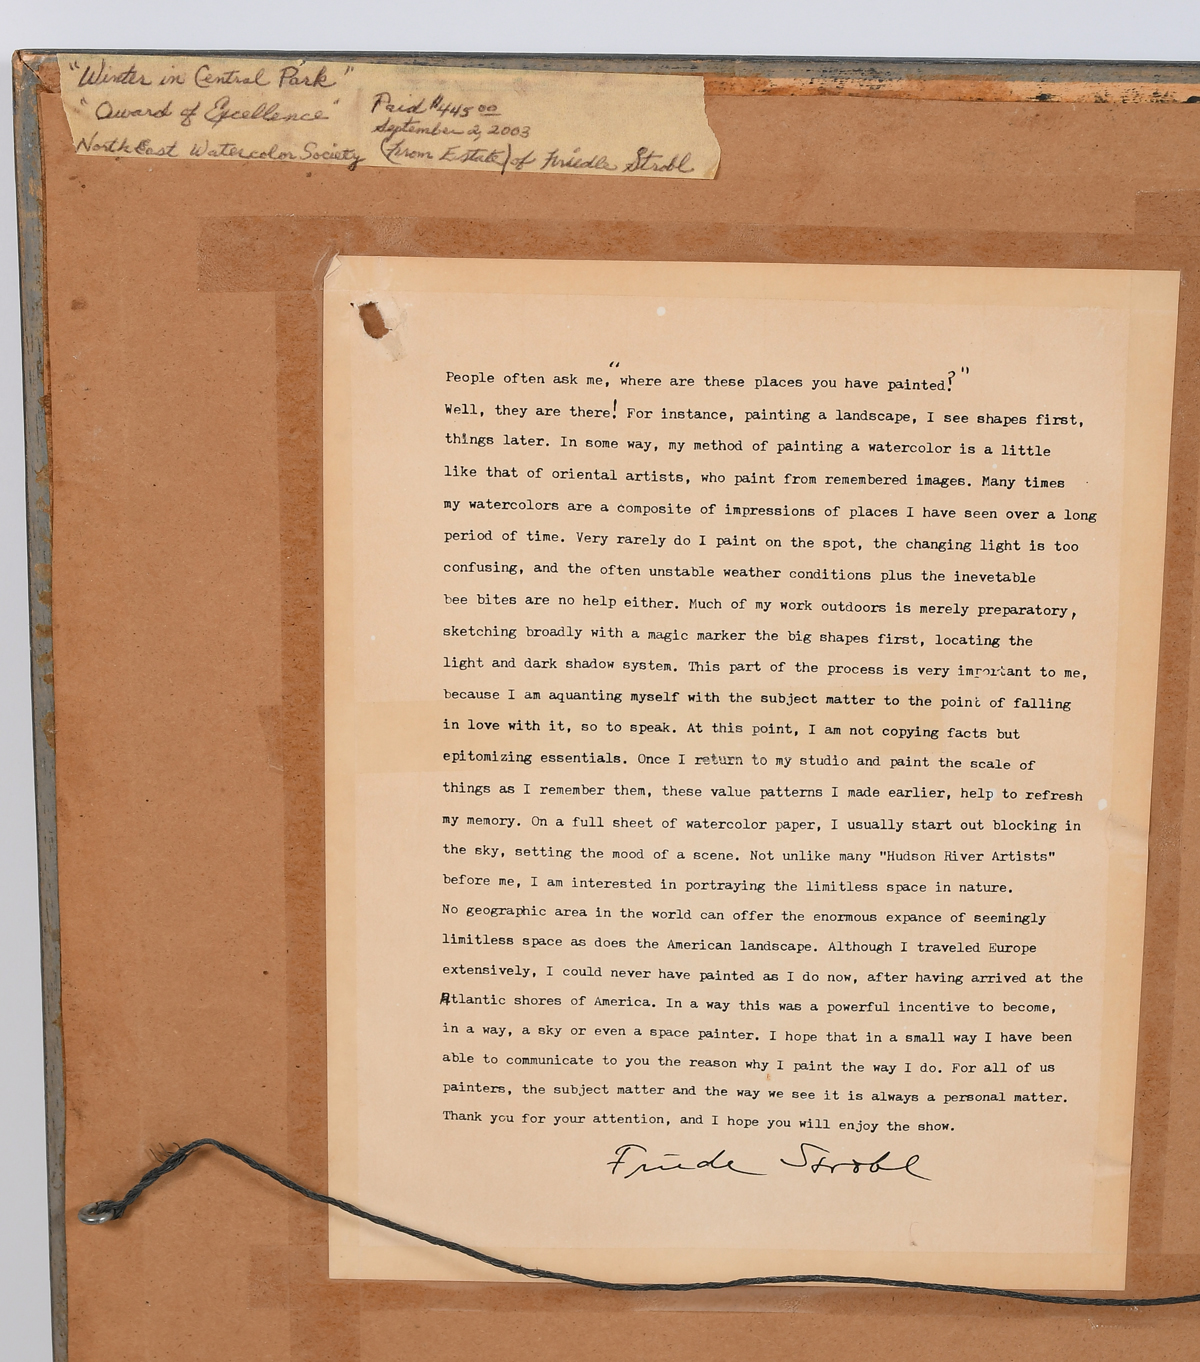 "Winter in Central Park"
"Award of Excellence"
NorthEast Watercolor Society
Paid $445 00
September 2, 2003
(from Estate) of Friedle Strobl
People often ask me, "where are these places you have painted?"
Well, they are there! For instance, painting a landscape, I see shapes first,
things later. In some way, my method of painting a watercolor is a little
like that of oriental artists, who paint from remembered images. Many times
my watercolors are a composite of impressions of places I have seen over a long
period of time. Very rarely do I paint on the spot, the changing light is too
confusing, and the often unstable weather conditions plus the inevetable
bee bites are no help either. Much of my work outdoors is merely preparatory,
sketching broadly with a magic marker the big shapes first, locating the
light and dark shadow system. This part of the process is very important to me,
because I am aquanting myself with the subject matter to the point of falling
in love with it, so to speak. At this point, I am not copying facts but
epitomizing essentials. Once I return to my studio and paint the scale of
things as I remember them, these value patterns I made earlier, help to refresh
my memory. On a full sheet of watercolor paper, I usually start out blocking in
the sky, setting the mood of a scene. Not unlike many "Hudson River Artists"
before me, I am interested in portraying the limitless space in nature.
No geographic area in the world can offer the enormous expance of seemingly
limitless space as does the American landscape. Although I traveled Europe
extensively, I could never have painted as I do now, after having arrived at the
Atlantic shores of America. In a way this was a powerful incentive to become,
in a way, a sky or even a space painter. I hope that in a small way I have been
able to communicate to you the reason why I paint the way I do. For all of us
painters, the subject matter and the way we see it is always a personal matter.
Thank you for your attention, and I hope you will enjoy the show.
Friede Strobl